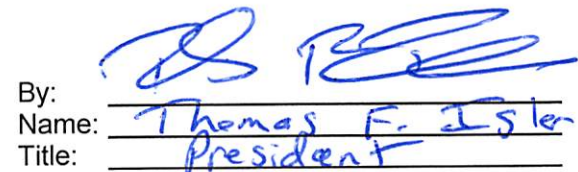 By:
Name: Thomas F. Isler
Title: President